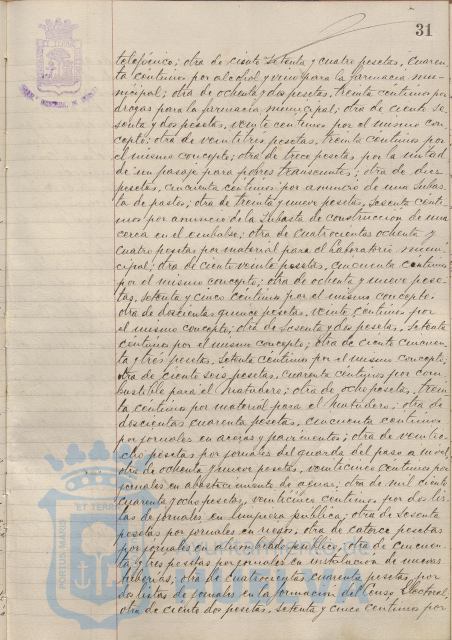 31
telefónico; otra de ciento setenta y cuatro pesetas, cuaren-
ta centimos por alcohol y vino para la farmacia mu-
nicipal; otra de ochenta y dos pesetas, treinta centimos por
drogas para la farmacia municipal; otra de ciento se-
senta y dos pesetas, veinte centimos por el mismo con-
cepto; otra de veintitrés pesetas, treinta centimos por
el mismo concepto; otra de trece pesetas por la mitad
de un pasaje para pobres transeuntes; otra de diez
pesetas, cincuenta centimos por anuncio de una subas-
ta de pastos; otra de treinta y nueve pesetas, sesenta cénti-
mos por anuncio de la subasta de construccion de una
cerca en el embalse; otra de cuatrocientas ochenta y
cuatro pesetas por material para el Laboratorio muni-
cipal; otra de ciento veinte pesetas, cincuenta centimos
por el mismo concepto; otra de ochenta y nueve pese-
tas, setenta y cinco centimos por el mismo concepto;
otra de doscientas quince pesetas, veinte centimos por
el mismo concepto; otra de sesenta y dos pesetas, setenta
centimos por el mismo concepto; otra de ciento cincuen-
ta y tres pesetas, setenta céntimos por el mismo concepto;
otra de ciento seis pesetas, cuarenta centimos por com-
bustible para el matadero; otra de ocho pesetas, trein-
ta centimos por material para el Matadero; otra de
doscientas cuarenta pesetas, cincuenta centimos
por jornales en aceras y pavimentos; otra de ventio-
cho pesetas por jornales del guarda del paso a nivel;
otra de ochenta y nueve pesetas, veinticinco centimos por
jornales en abastecimiento de aguas; otra de mil ciento
cuarenta y ocho pesetas, veinticinco centimos por dos lis-
tas de jornales en limpieza pública; otra de sesenta
pesetas por jornales en riegos; otra de catorce pesetas
por jornales en alumbrado público; otra de cincuen-
ta y tres pesetas por jornales en instalacion de nuevas
tuberias; otra de cuatrocientas cuarenta pesetas por
dos listas de jornales en la formacion del Censo Electoral;
otra de ciento dos pesetas, setenta y cinco centimos por
ET TERRAE
PORTUS MARIS